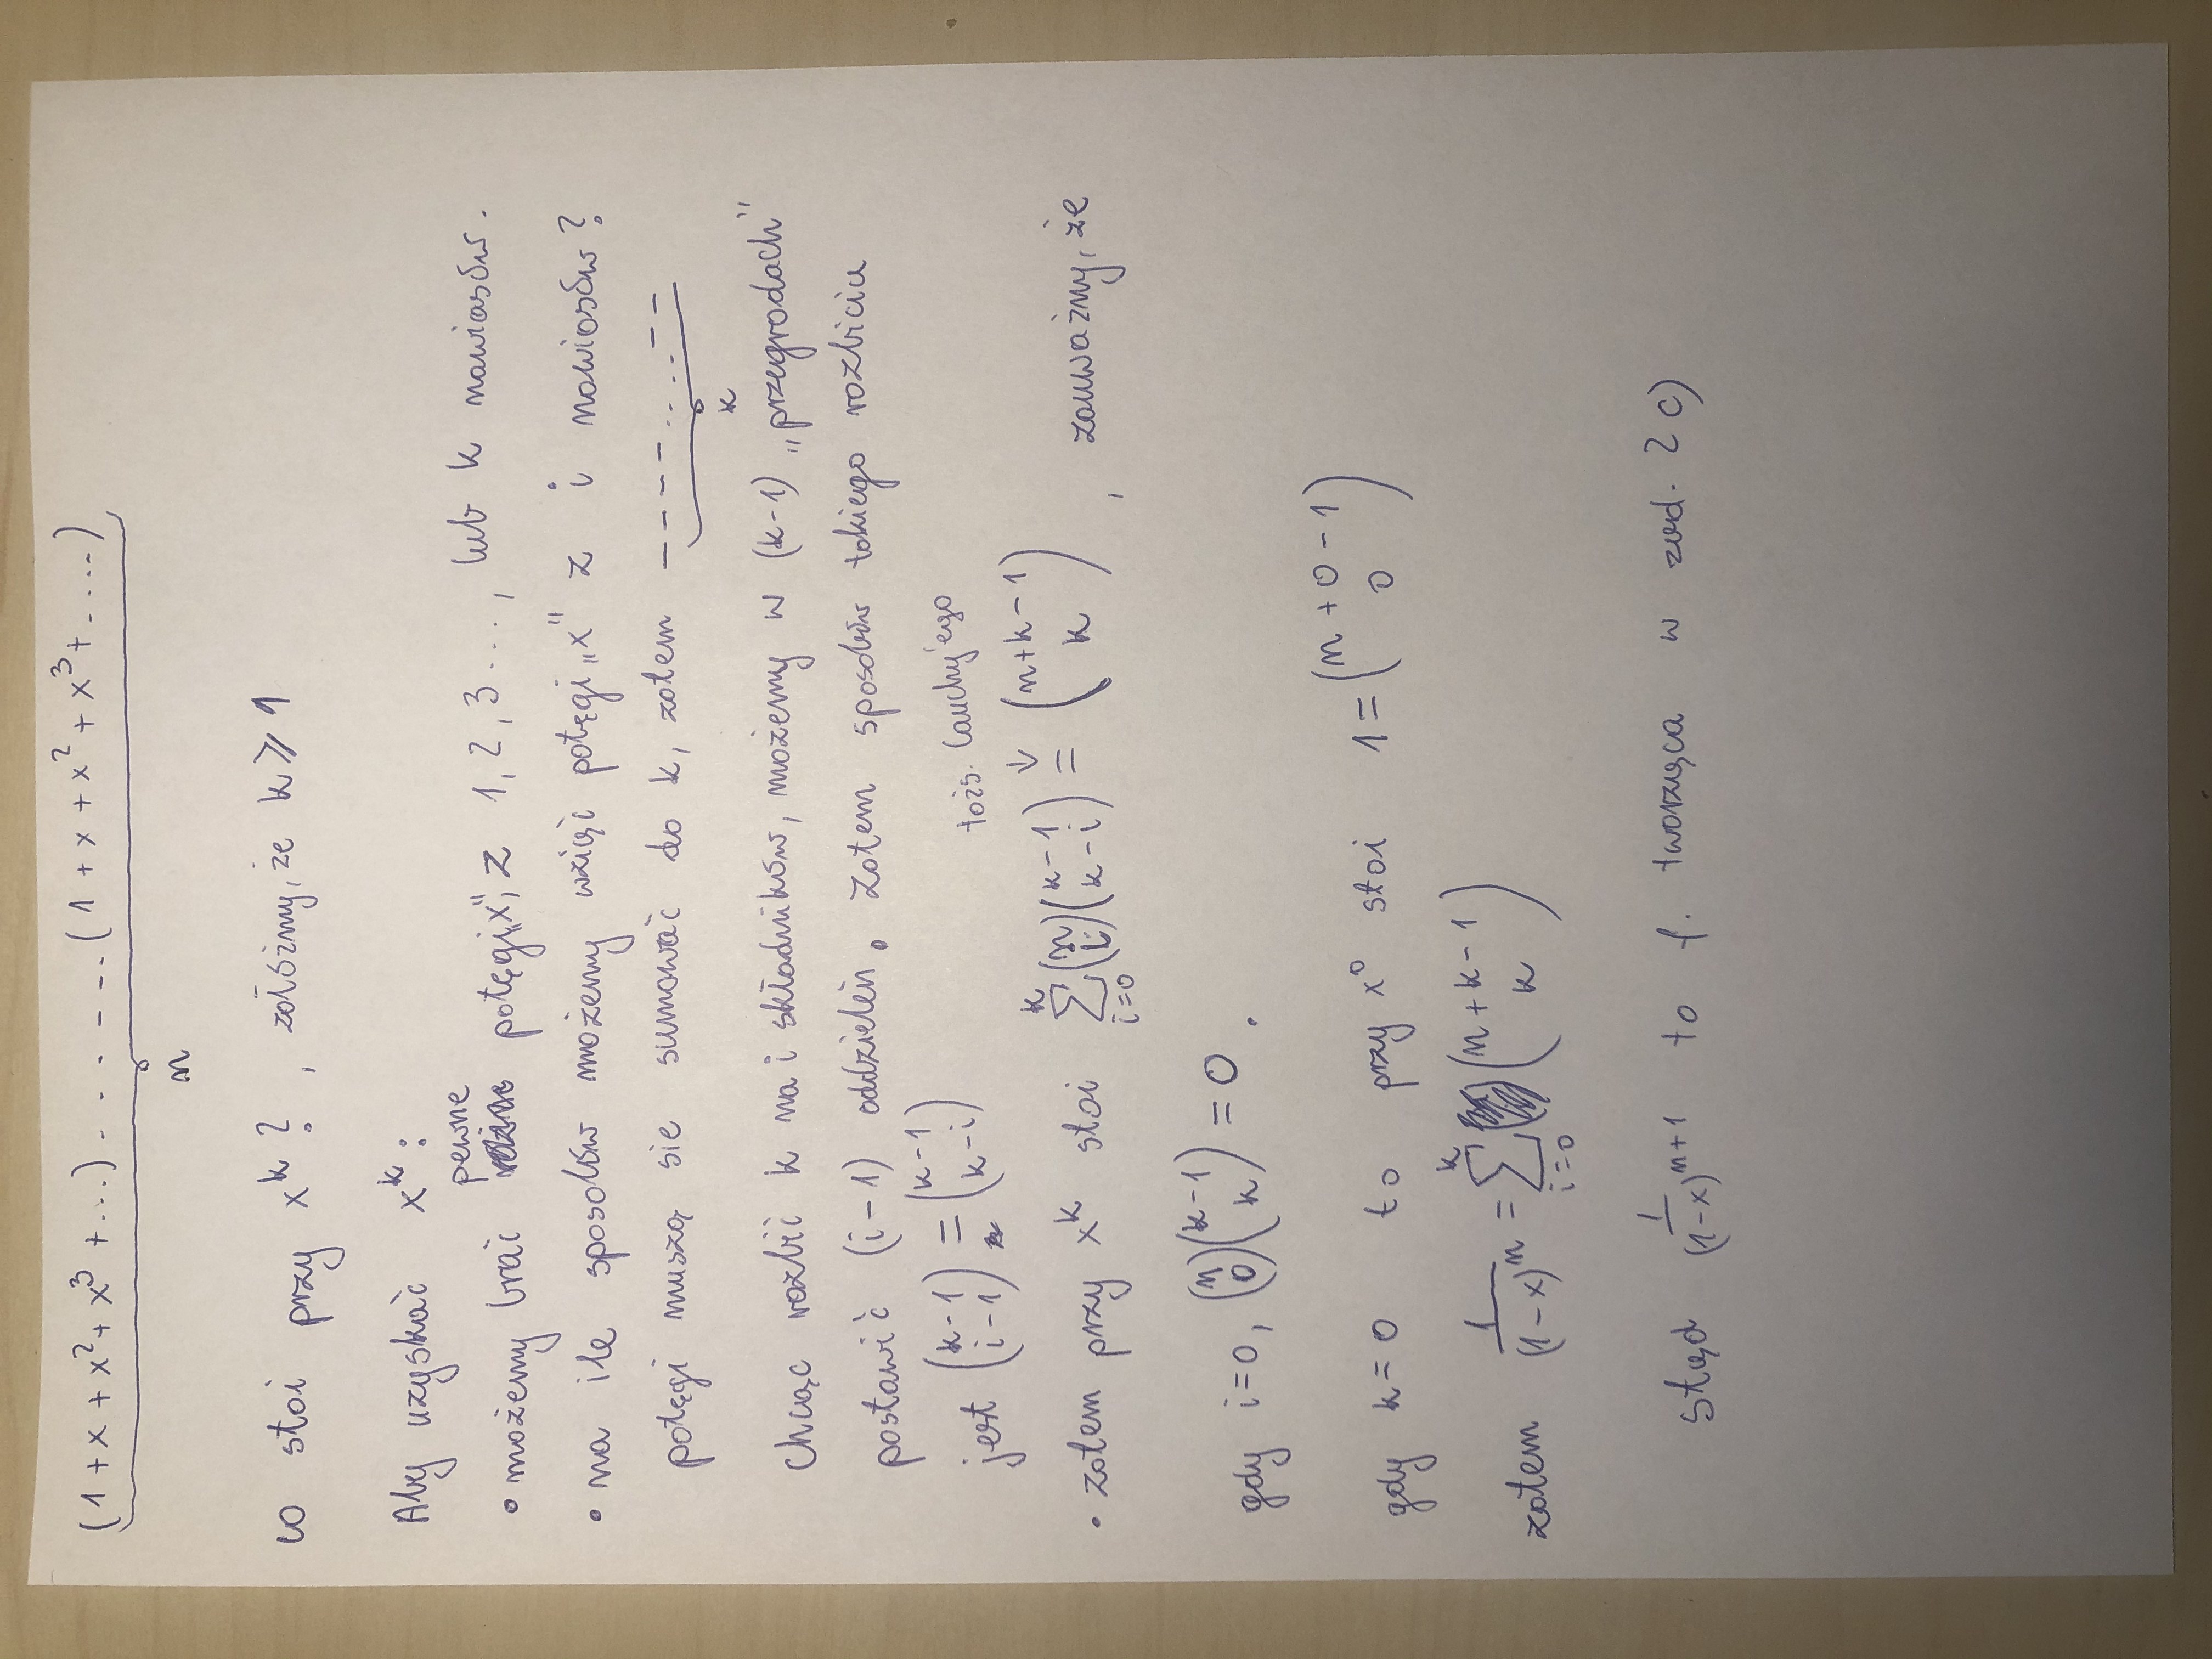 (1 + x + x² + x³ + ...) . . . . - - - . (1 + x + x² + x³ + .....)
n
co stoi przy x^k ? , załóżmy, że k ⩾ 1
Aby uzyskać x^k :
pewne
• możemy brać potęgi „x", z 1, 2, 3 ..., lub k nawiasów.
• na ile sposobów możemy wziąć potęgi „x" z i nawiasów?
potęgi muszą sie sumować do k, zatem _ _ _ _ . . . . _ _
k
Chcąc rozbić k na i składników, możemy w (k-1) „przegrodach"
postawić (i-1) oddzieleń. Zatem sposobów takiego rozbicia
jest \binom{k-1}{i-1} = \binom{k-1}{k-i}
tożs. Cauchy'ego
↓
• zatem przy x^k stoi \sum_{i=0}^{k} \binom{n}{i} \binom{k-1}{k-i} = \binom{n+k-1}{k} , zauważmy, że
gdy i=0, \binom{n}{0} \binom{k-1}{k} = 0 .
gdy k=0 to przy x⁰ stoi 1 = \binom{n+0-1}{0}
zatem \frac{1}{(1-x)^n} = \sum_{i=0}^{k} \binom{n+k-1}{k}
stąd \frac{1}{(1-x)^{n+1}} to f. tworząca w zad. 2 c)